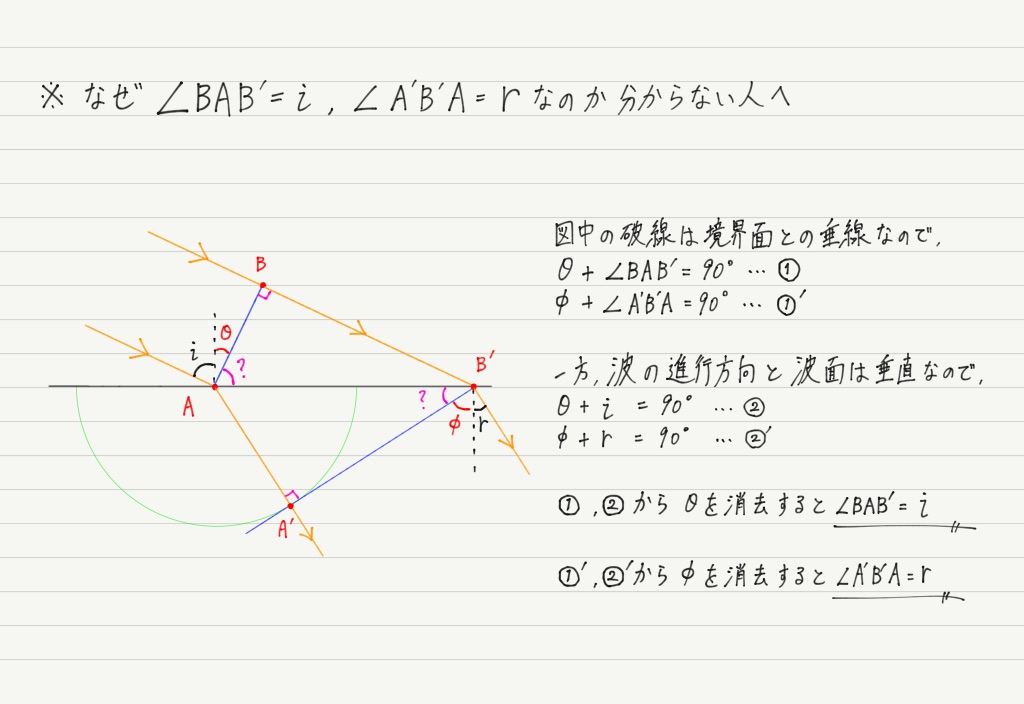 ※ なぜ ∠BAB′= i , ∠A′B′A = r なのか分からない人へ
図中の破線は境界面との垂線なので,
θ + ∠BAB′ = 90° … ①
φ + ∠A′B′A = 90° … ①′
一方, 波の進行方向と波面は垂直なので,
θ + i = 90° … ②
φ + r = 90° … ②′
①, ②から θを消去すると ∠BAB′ = i
①′, ②′から φを消去すると ∠A′B′A = r
B
θ
i
?
B′
A
?
φ
r
A′